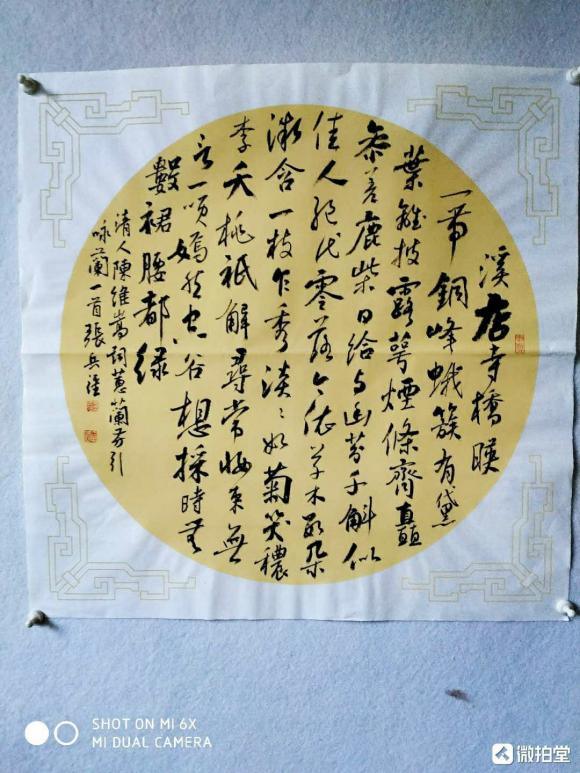 溪店寺橋暎
一帶銅峰蛾簇有黛
葉離披露萼煙條齊矗
參差鹿柴日給与幽芬千斛似
佳人絕代零落今依草木數朵
微含一枝乍秀淡淡如菊笑穠
李夭桃祗解尋常無
言一嫣然空谷想採時
數裙腰都綠
清人陳維崧詞蕙蘭芳引
咏蘭一首張兵
SHOT ON MI 6X
MI DUAL CAMERA
微拍堂